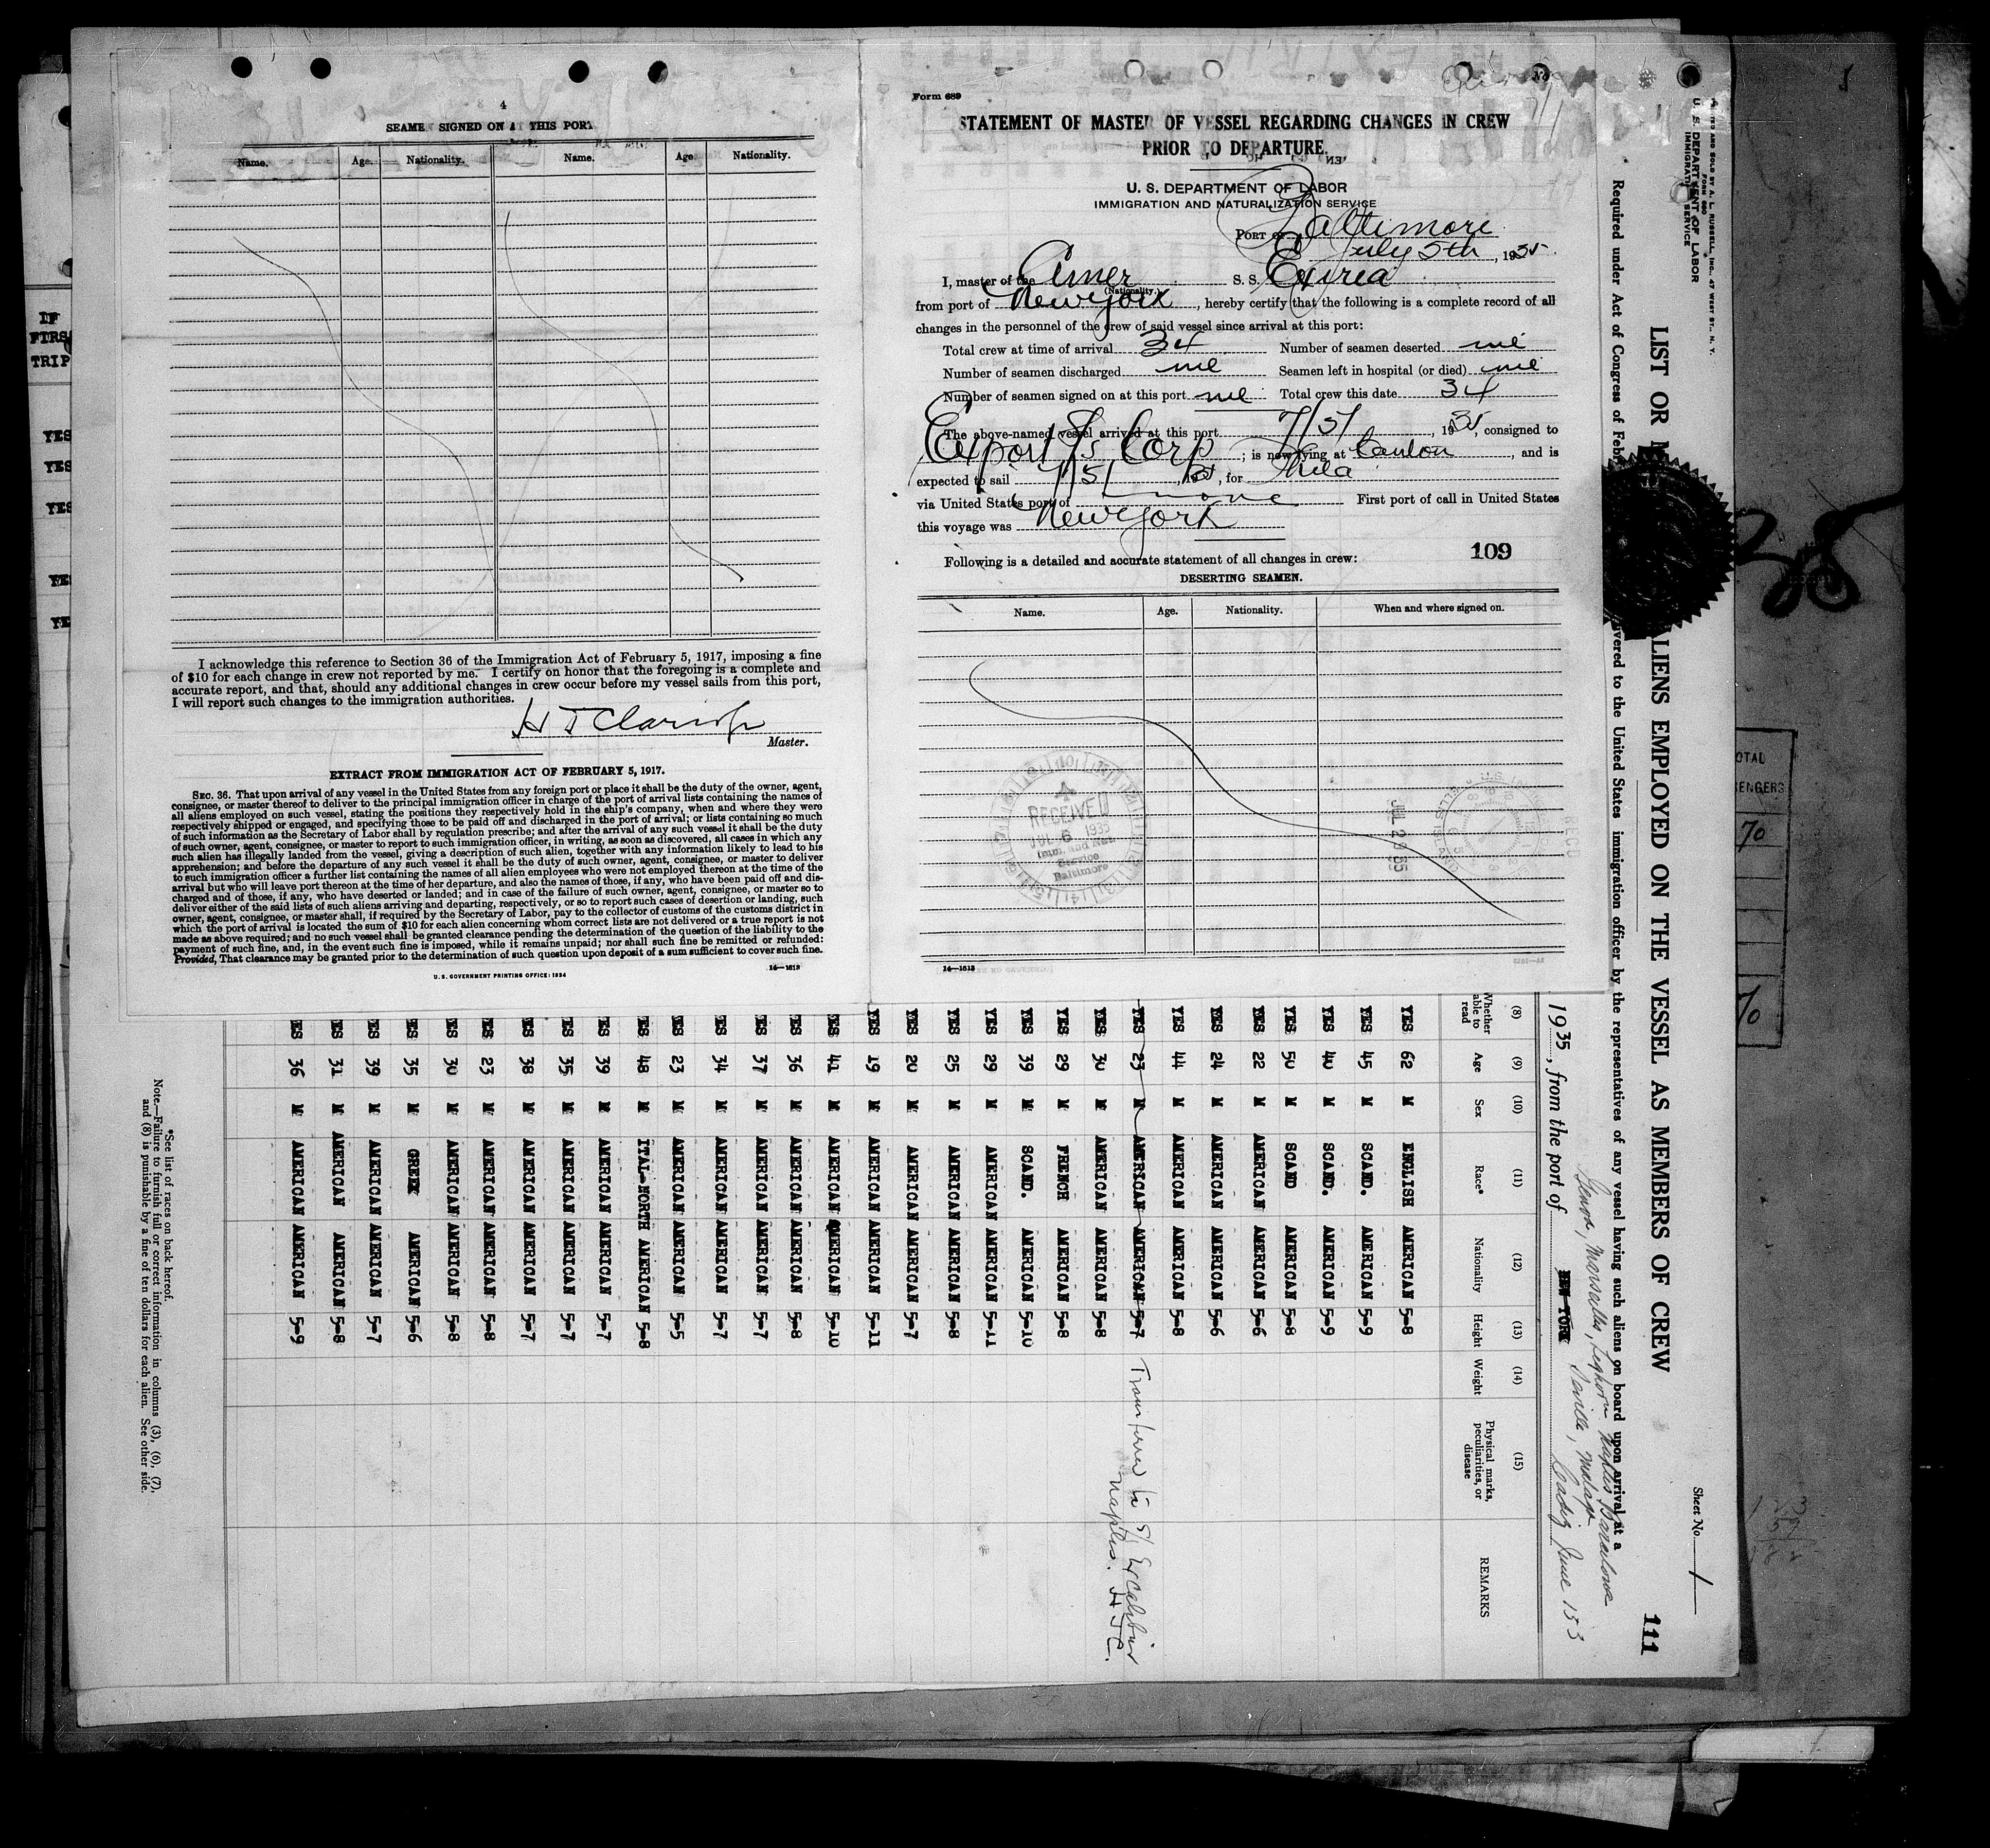 4
SEAMEN SIGNED ON AT THIS PORT
Name. Age. Nationality. Name. Age Nationality.
I acknowledge this reference to Section 36 of the Immigration Act of February 5, 1917, imposing a fine
of $10 for each change in crew not reported by me. I certify on honor that the foregoing is a complete and
accurate report, and that, should any additional changes in crew occur before my vessel sails from this port,
I will report such changes to the immigration authorities.
Master.
EXTRACT FROM IMMIGRATION ACT OF FEBRUARY 5, 1917.
SEC. 36. That upon arrival of any vessel in the United States from any foreign port or place it shall be the duty of the owner, agent,
consignee, or master thereof to deliver to the principal immigration officer in charge of the port of arrival lists containing the names of
all aliens employed on such vessel, stating the positions they respectively hold in the ship's company, when and where they were
respectively shipped or engaged, and specifying those to be paid off and discharged in the port of arrival; or lists containing so much
of such information as the Secretary of Labor shall by regulation prescribe; and after the arrival of any such vessel it shall be the duty
of such owner, agent, consignee, or master to report to such immigration officer, in writing, as soon as discovered, all cases in which any
such alien has illegally landed from the vessel, giving a description of such alien, together with any information likely to lead to his
apprehension; and before the departure of any such vessel it shall be the duty of such owner, agent, consignee, or master to deliver
to such immigration officer a further list containing the names of all alien employees who were not employed thereon at the time of the
arrival but who will leave port thereon at the time of her departure, and also the names of those, if any, who have been paid off and dis-
charged and of those, if any, who have deserted or landed; and in case of the failure of such owner, agent, consignee, or master so to
deliver either of the said lists of such aliens arriving and departing, respectively, or so to report such cases of desertion or landing, such
owner, agent, consignee, or master shall, if required by the Secretary of Labor, pay to the collector of customs of the customs district in
which the port of arrival is located the sum of $10 for each alien concerning whom correct lists are not delivered or a true report is not
made as above required; and no such vessel shall be granted clearance pending the determination of the question of the liability to the
payment of such fine, and, in the event such fine is imposed, while it remains unpaid; nor shall such fine be remitted or refunded:
Provided, That clearance may be granted prior to the determination of such question upon deposit of a sum sufficient to cover such fine.
U. S. GOVERNMENT PRINTING OFFICE: 1934 14—1613
Form 689
STATEMENT OF MASTER OF VESSEL REGARDING CHANGES IN CREW
PRIOR TO DEPARTURE.
U. S. DEPARTMENT OF LABOR
IMMIGRATION AND NATURALIZATION SERVICE
PORT OF Baltimore
July 5th, 1935.
I, master of the Amer S. S. Exirea
(Nationality.)
from port of New York, hereby certify that the following is a complete record of all
changes in the personnel of the crew of said vessel since arrival at this port:
Total crew at time of arrival 34 Number of seamen deserted nil
Number of seamen discharged nil Seamen left in hospital (or died) nil
Number of seamen signed on at this port nil Total crew this date 34
The above-named vessel arrived at this port 7/5/, 1935, consigned to
Export SS Corp; is now lying at Canton, and is
expected to sail 7/5/, 1935, for Phila
via United States port of none First port of call in United States
this voyage was New York
Following is a detailed and accurate statement of all changes in crew:
109
DESERTING SEAMEN.
Name. Age. Nationality. When and where signed on.
RECEIVED
JUL 6 1935
Imm. and Nat.
Service
Baltimore
JUL 29 35
14—1613
IF
FIRST
TRIP
YES
YES
YES
YES
YES
LIST OR ALIENS EMPLOYED ON THE VESSEL AS MEMBERS OF CREW
111
Sheet No. 1
FORM 680
U. S. DEPARTMENT OF LABOR
IMMIGRATION SERVICE
Required under Act of Congress of Feb vered to the United States immigration officer by the representatives of any vessel having such aliens on board upon arrival at a
Genoa, Marseilles, Leghorn Naples Barcelona
1935, from the port of NEW YORK Seville, Malaga
Cadiz June 15
(8) (9) (10) (11) (12) (13) (14) (15)
Whether able to read Age Sex Race* Nationality Height Weight Physical marks, peculiarities, or disease REMARKS
YES 62 M ENGLISH AMERICAN 5-8
YES 45 M SCAND. AMERICAN 5-9
YES 40 M SCAND. AMERICAN 5-9
YES 50 M SCAND AMERICAN 5-8
YES 22 M AMERICAN AMERICAN 5-6
YES 24 M AMERICAN AMERICAN 5-6
YES 44 M AMERICAN AMERICAN 5-8
YES 23 M AMERICAN AMERICAN 5-7 Transferred to S/S Excalibur
Naples. HJC.
YES 30 M AMERICAN AMERICAN 5-8
YES 29 M FRENCH AMERICAN 5-8
YES 39 M SCAND. AMERICAN 5-10
YES 29 M AMERICAN AMERICAN 5-11
YES 25 M AMERICAN AMERICAN 5-8
YES 20 M AMERICAN AMERICAN 5-7
YES 19 M AMERICAN AMERICAN 5-11
YES 41 M AMERICAN AMERICAN 5-10
YES 36 M AMERICAN AMERICAN 5-8
YES 37 M AMERICAN AMERICAN 5-7
YES 34 M AMERICAN AMERICAN 5-7
YES 23 M AMERICAN AMERICAN 5-5
YES 48 M ITAL-NORTH AMERICAN 5-8
YES 39 M AMERICAN AMERICAN 5-7
YES 35 M AMERICAN AMERICAN 5-7
YES 38 M AMERICAN AMERICAN 5-7
YES 23 M AMERICAN AMERICAN 5-8
YES 30 M AMERICAN AMERICAN 5-8
YES 35 M GREEK AMERICAN 5-6
YES 39 M AMERICAN AMERICAN 5-7
YES 31 M AMERICAN AMERICAN 5-8
YES 36 M AMERICAN AMERICAN 5-9
*See list of races on back hereof.
Note.—Failure to furnish full or correct information in columns (3), (6), (7),
and (8) is punishable by a fine of ten dollars for each alien. See other side.
OTAL
ENGERS
70
70